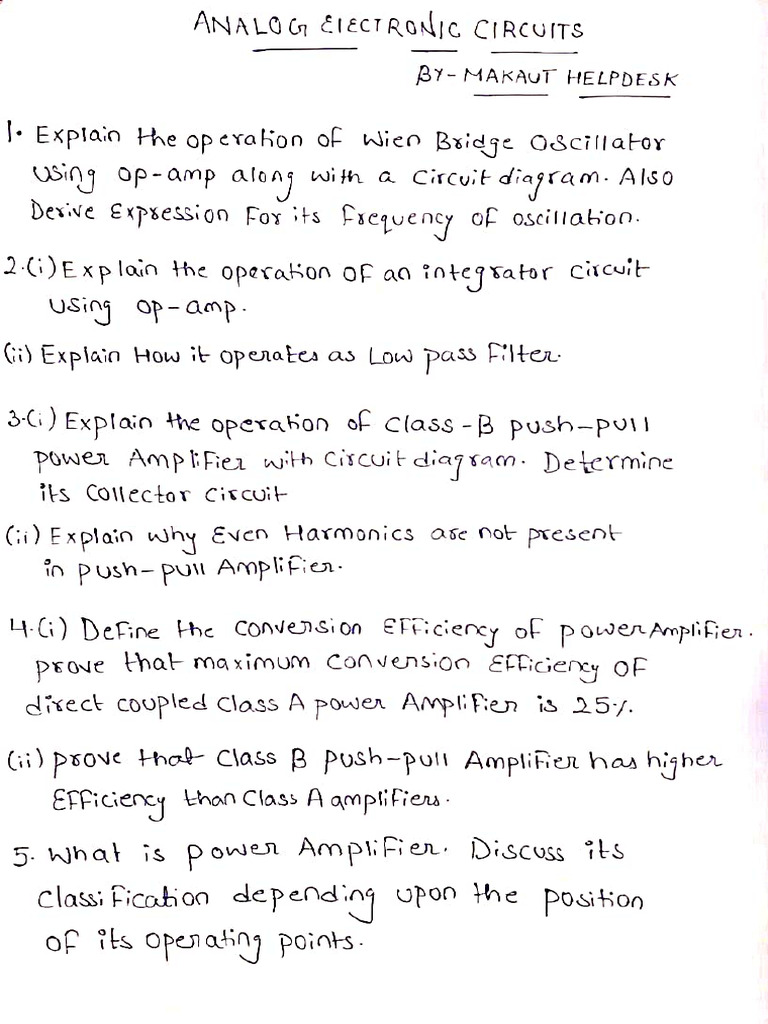 ANALOG ELECTRONIC CIRCUITS
BY- MAKAUT HELPDESK
1. Explain the operation of Wien Bridge Oscillator
using op-amp along with a circuit diagram. Also
Derive Expression For its frequency of oscillation.
2.(i) Explain the operation of an integrator circuit
using op-amp.
(ii) Explain How it operates as Low pass Filter.
3.(i) Explain the operation of class-B push-pull
power Amplifier with circuit diagram. Determine
its collector circuit
(ii) Explain why Even Harmonics are not present
in push-pull Amplifier.
4.(i) Define the conversion Efficiency of power Amplifier.
prove that maximum conversion Efficiency of
direct coupled class A power Amplifier is 25%.
(ii) prove that class B push-pull Amplifier has higher
Efficiency than class A amplifiers.
5. What is power Amplifier. Discuss its
classification depending upon the position
of its operating points.